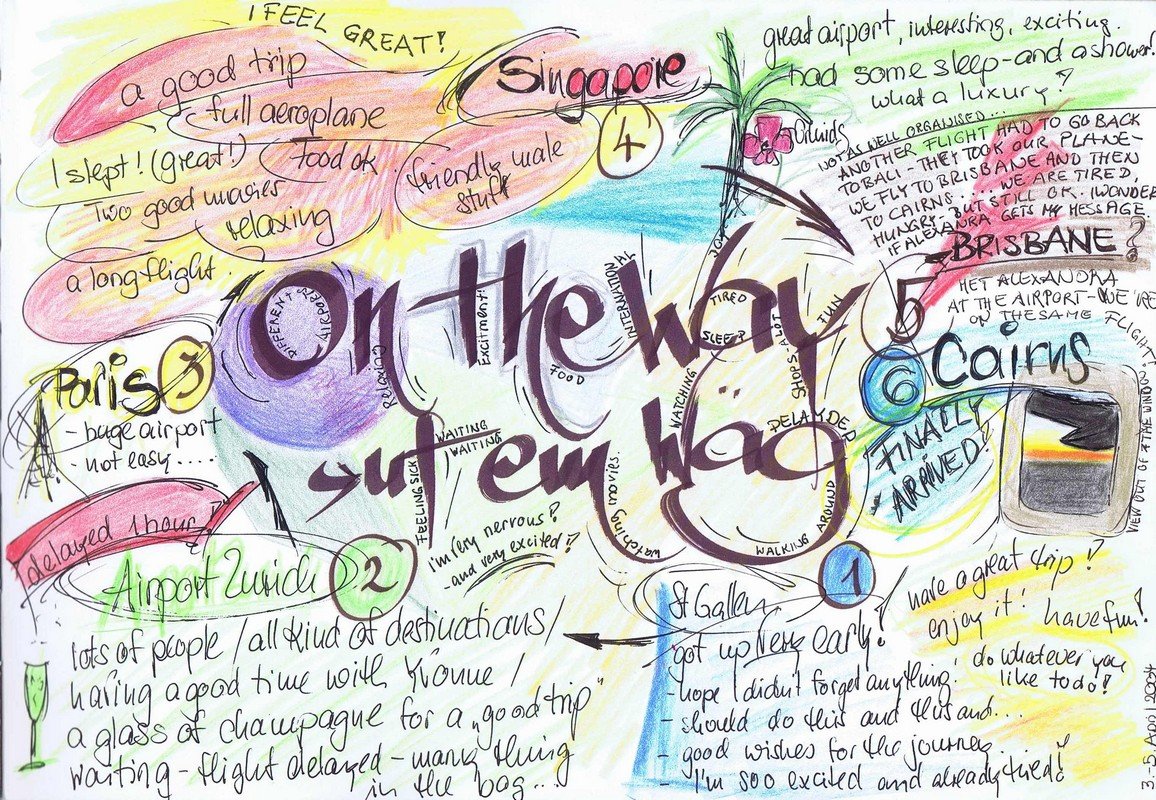 I FEEL GREAT!
a good trip
full aeroplane
I slept! (great!)
food ok
friendly male
stuff
Two good movies
relaxing
a long flight.
Singapore
4
great airport, interesting, exciting.
had some sleep-and a shower!
what a luxury!
NOT AS WELL ORGANISED...
ANOTHER FLIGHT HAD TO GO BACK
TO BALI - THEY TOOK OUR PLANE-
WE FLY TO BRISBANE AND THEN
TO CAIRNS.... WE ARE TIRED,
HUNGRY - BUT STILL OK. I WONDER
IF ALEXANDRA GETS MY MESSAGE.
5
BRISBANE?
MET ALEXANDRA
AT THE AIRPORT - WE'RE
ON THE SAME FLIGHT
On the Way
uf em Wäg
DIFFERENT
AIRPORTS
RELAXED
Excitment!
FOOD
INTERNATIONAL
TIRED
SLEEP
WATCHING
SHOPS: A LOT
FUN
DELAYDED
WAITING
WAITING
FEELING SICK
watching movies.
WALKING
AROUND
I'm very nervous!
- and very excited!
Paris
3
- huge airport
- not easy....
delayed 1 hour!
Airport Zurich
2
lots of people / all kind of destinations /
having a good time with Yvonne /
a glass of champagne for a „good trip"
waiting - flight delayed - many thing
in the bag...
6
Cairns
FINALLY
ARRIVED!
VIEW OUT OF THE WINDOW
1
St Gallen
got up very early!
- hope I didn't forget anything!
- should do this and this and...
- good wishes for the journey
- I'm soo excited and already tired!
have a great trip!
enjoy it!
have fun!
do whatever you
like to do!
3.-5. April 2004